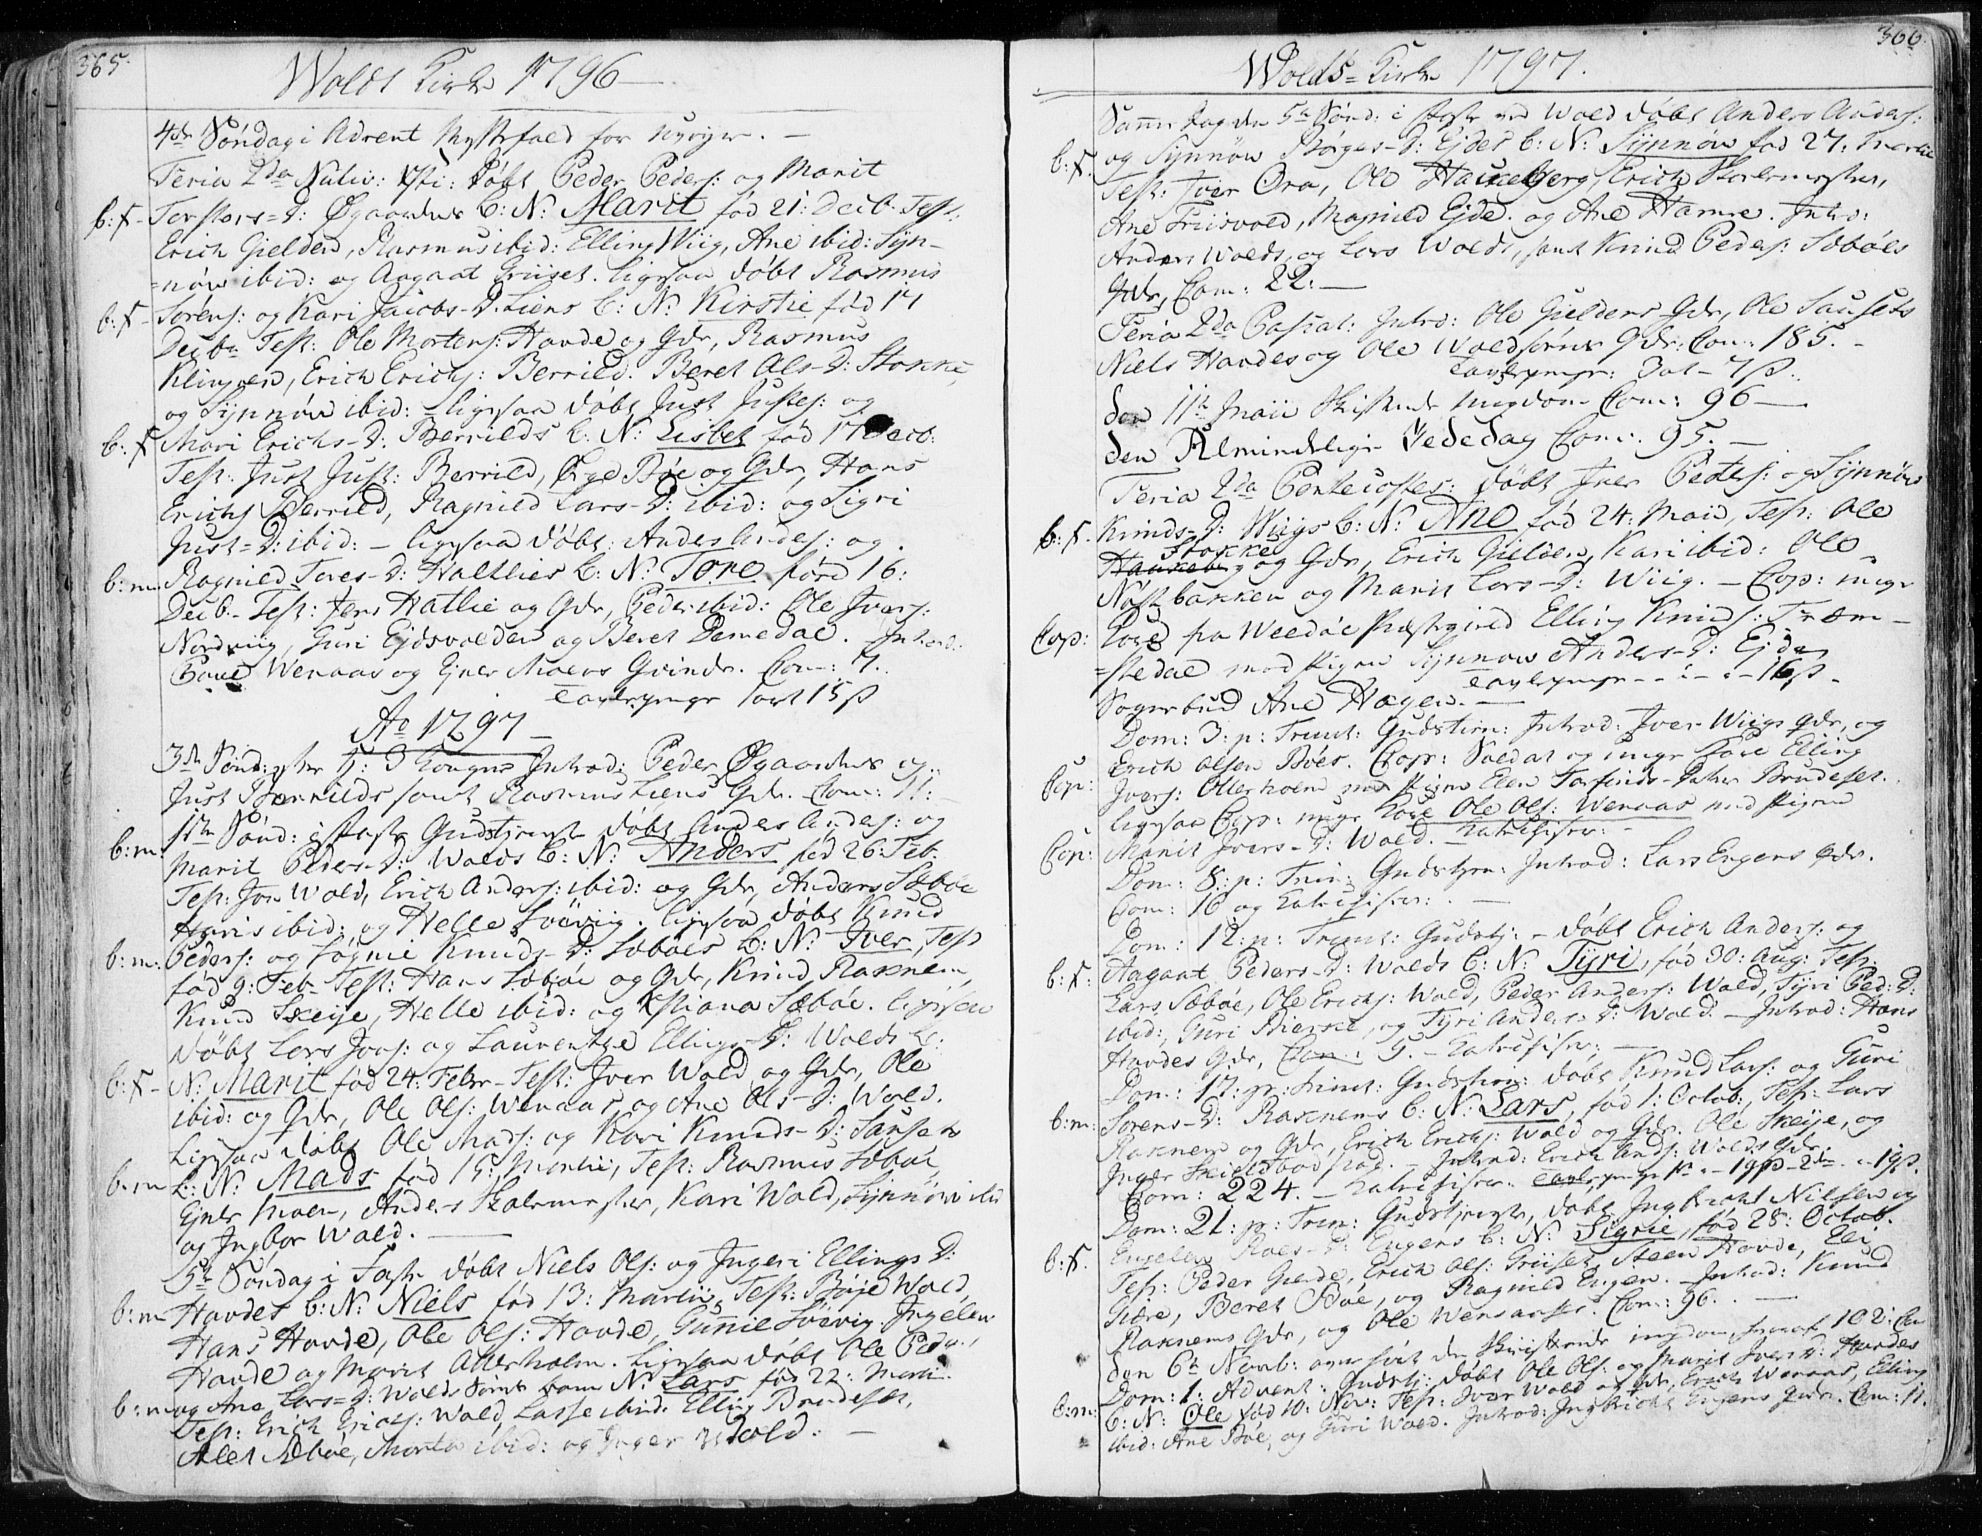 365.
Wolds Kirke 1796
4de Søndag i Advent
Feria 2da Nativ: Xsti: døbt Peder Peders: og Marit
b: f- Torstens-D: Øgaardens b: N: Marit fød 21: Decb. Test:
Erich Gielden, Rasmus ibid: Elling Wiig, Ane ibid: Syn-
=nøw ibid: og Aagaat Griiset. Ligesaa døbt Rasmus
b: f- Sørens: og Kari Jacobs-D: Liens b: N: Kirstie fød 17
Decbr Test: Ole Mortens: Hovde og Gdr, Rasmus
Klingen, Erich Erichs: Berrild. Beret Ols-D: Stokke,
og Synnøw ibid: - Ligesaa døbt Just Justes: og
b: f Mari Erichs-D: Berrilds b: N: Lisbet fød 17 Decb:
Test: Just Just: Berrild, Bøe og Gdr, Hans
Erichs Berrild, Ragnild Lars-D: ibid: og Sigri
Just-D: ibid: - ligesaa døbt Anders Anders: og
b: m. Ragnild Tores-D: Hatlies b: N: Tore fød 16:
Decb- Test: Jens Hatlie og Gdr, Peder ibid: Ole Ivers:
Nordwiig, Guri Ejdsvolden og Beret Demedal. Introd:
Poul Wenaas og Ejner Moens Qvinder. Com: 7.
Tavlepenge 15 ß
Ao 1797
3de Sønd: efter H: 3 Kongers Introd: Peder Øgaardens og
Just Berrilds samt Rasmus Liens Gdr. Com: 11: -
1ste Sønd: i Faste Gudstjeneste døbt Anders Anders: og
b: m. Marit Peders-D: Wolds b: N: Anders fød 26: Feb.
Test: Jon Wold, Erich Anders: ibid: og Gdr, Anders Sæbøe
ibid: og Helle Søvig. ligesaa døbt Knud
b: m: Peders: og Knuds-D: Sæbøes b: N: Iver, Test
fød 9: Feb- Test: Hans Sæbøe og Gdr, Knud Raknem,
Knud Skeije, Helle ibid: og Sæbøe. Ligesaa
døbt Lars Jons: og Laurentze Ellings-D: Wolds b:
b: f- N: Marit fød 24: Febr- Test: Iver Wold og Gdr, Ole
ibid: og Gdr, Ole Ols: Wenaas og Ane Ols-D: Wold.
Ligesaa døbt Ole Mads: og Kari Knuds-D: Sauset
b: m b: N: Mads fød 15: Martii, Test: Rasmus Sæbøe,
Ejner Moen, Anders Skolemester, Kari Wold, Synnøw ibid
og Ingbor Wold.
5te Søndag i Faste døbt Niels Ols: og Ingeri Ellings D:
b: m Hovdes b: N: Niels fød 13: Martii, Test: Børje Wold,
Hans Hovde, Ole Ols: Hovde, Gunnie Søevig, Ingeleu
Hovde og Marit Otterholm. Ligesaa døbt Ole Peders:
b: m og Ane Lars-D: Wolds barn N: Lars fød 22: Martii.
Test: Erich Erichs: Wold, Lasse ibid: Elling Brudeset,
Alet Sæbøe, Marta ibid: og Inger Wold. -
366.
Wolds-Kirke 1797.
Samme Dag den 5te Sønd: i Faste ved Wold døbt Anders Anders:
b: f. og Synnøw Børges-D: Ejdes b: N: Synnøw fød 27: Martii
Test: Iver Øra, Ole Haukeberg, Erich Skolemester,
Ane Friisvold, Magnild Ejde. og Ane Hamre. Intro:
Anders Wolds, og Lars Wolds, samt Knud Peders: Sæbøes
Gdr, Com: 22: -
Feria 2da Pascat: Introd: Ole Gieldens Gdr, Ole Sausets
Niels Hovdes og Ole Gdr. Com: 185. -
Tavlepenge: 3 ort - 7 ß.
den 11te Maii Skriftende Ungdom Com: 96 -
den Almindelige Bededag Com: 95. -
Feria 2da Pentecostes: døbt Iver Peders: og Synnøw
b: f. Knuds-D: Wiigs b: N: Ane fød 24: Maii, Test: Ole
Stokke
Haukeberg og Gdr, Erich Gielden, Kari ibid: Ole
Næstbakken og Marit Lars-D: Wiig. - Cop: unge
Cop: Karl fra Weedøe Præstegield Elling Knuds: Træm-
=stedal med Pigen Synnøw Anders-D: Ejde.
Tavlepenge - - : - 16 ß.
Sognebud Ane Hagen. -
Dom: 3: p: Trinit: Gudstien: Introd: Iver Wiigs gdr, og
Erich Olsen Bøes. Cop: Soldat og unge Karl Elling
Cop: Ivers: Otterholm med Pigen Elen Torfinds-Datter Brudeset.
ligesaa Cop: unge Karl Ole Ols: Wenaas med Pigen
Cop: Marit Ivers-D: Wold. - Katechiser: -
Dom: 8: p: Trin: Gudstjen: Introd: Lars Engens gdr.
Com: 16 og Katechiser: . -
Dom: 12: p: Trinit: Gudstj: - døbt Erich Anders: og
b: f: Aagaat Peders-D: Wolds b: N: Tyri, fød 30: Aug: Test:
Lars Sæbøe, Ole Erichs: Wold, Peder Anders: Wold, Tyri Ped: D:
ibid:, Guri, og Tyri Anders: D: Wold. - Introd: Hans
Hovdes Gdr, Com: 5. - Katechiser: -
Dom: 17: p: Trinit: Gudstien: døbt Knud Lars: og Guri
b: m: Sørens-D: Raknems b: N: Lars, fød 1: Octob:, Test: Lars
Raknem og Gdr, Erich Erichs: Wold og Gdr. Ole Skeije, og
Inger. Introd: Erich Ands: Wolds Gdr.
Com: 224. - Katechiser. Tavlepenge 1ste - 19 ß - 2den - 19 ß.
Dom: 21: p: Trin: Gudstjeneste, døbt Ingbricht Nielsen og
b: f. Engelen Roes-D: Engens b: N: Sigrie, fød 28: Octob.
Test: Peder Gierde, Erich Ols: Griiset, Steen Hovde, Eli
Giære, Beret Bøe, og Ragnild Engen. - Introd: Knud
Raknems Gdr, og Ole Wenaas. Com: 96. -
den 6te Novb: Skriftende ungdom 102:
Dom: 1: Advent: Gudstj: døbt Ole Ols: og Marit Ivers D: Hovdes
b: m: b: N: Ole fød 10: Nov: Test: Iver Wold og gdr, Erich Wenaas, Elling
ibid: Ane Bøe, og Guri Wold. Introd: Ingbricht Engens gdr. Com: 11.